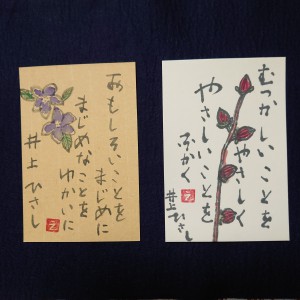 むつかしいことを
やさしく
やさしいことを
ふかく
井上ひさし
おもしろいことを
まじめに
まじめなことを
ゆかいに
井上ひさし